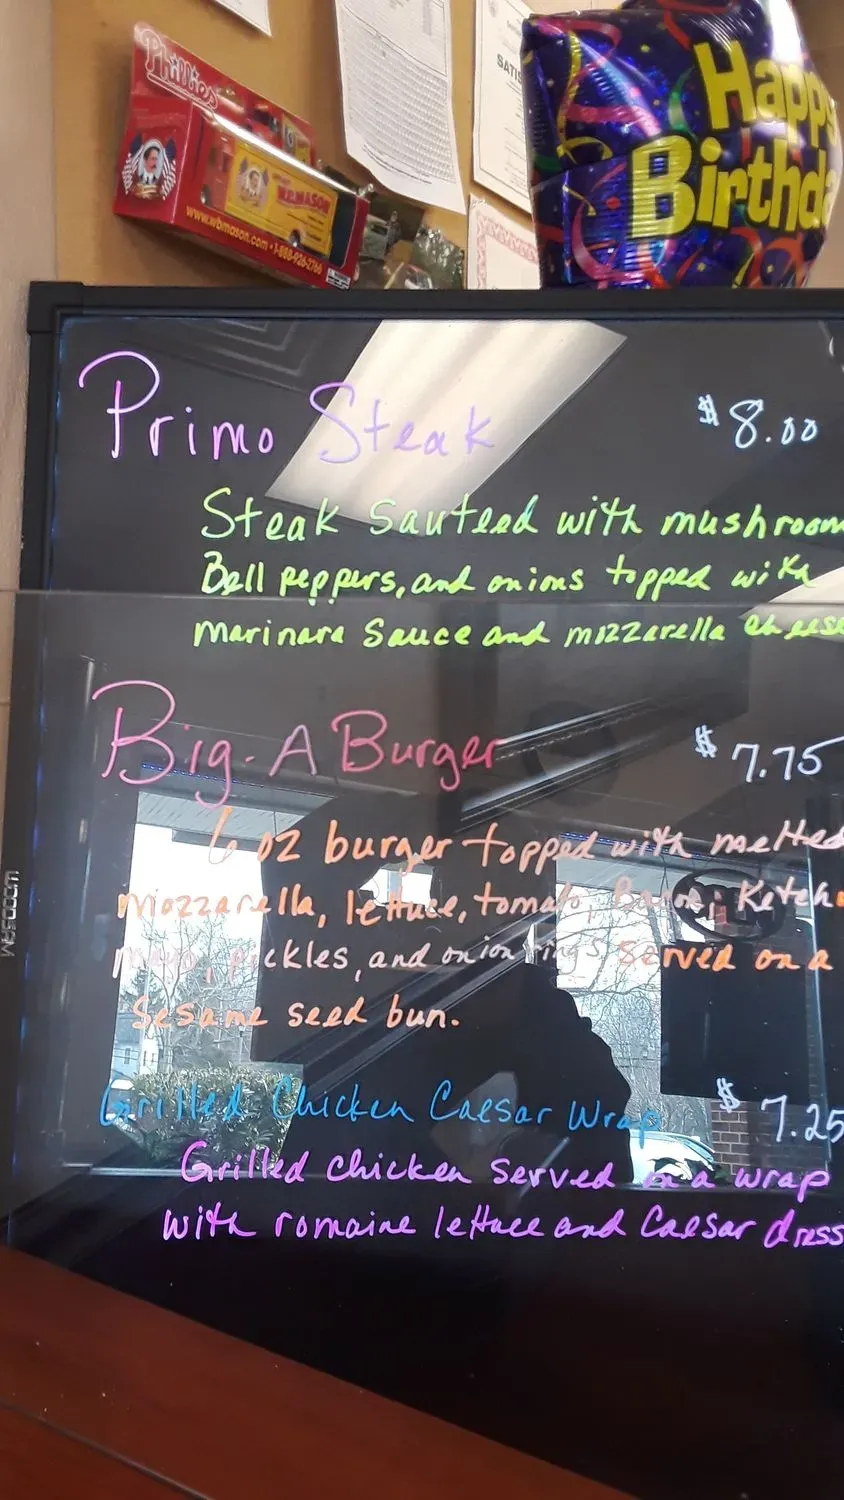 Phillies
W.B. MASON
www.wbmason.com • 1-888-926-2766
SATIS
Happy
Birthda
Primo Steak $8.00
Steak Sauteed with mushroom
Bell peppers, and onions topped with
marinara Sauce and mozzarella cheese
Big-A Burger $7.75
6 oz burger topped with melted
Mozzarella, lettuce, tomato, Bacon, Ketch
mayo, pickles, and onion rings served on a
Sesame seed bun.
Grilled Chicken Caesar Wrap $7.25
Grilled chicken served on a wrap
with romaine lettuce and Caesar dress
WOODSAM